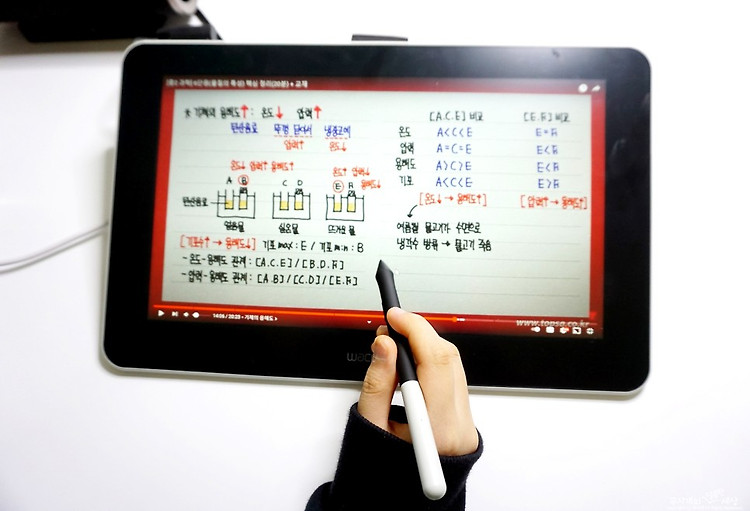 [중2 과학] 6단원(물질의 특성) 핵심 정리(20분) + 교재
* 기체의 용해도↑ : 온도↓ 압력↑
탄산음료 뚜껑 닫아서 냉장고에
압력↑ 온도↓
온도↓ 압력↑ 용해도↑
온도↑ 압력↓ 용해도↓
A B C D E F
탄산음료
얼음물 실온물 뜨거운 물
[기포수↑ → 용해도↓] 기포 max : E / 기포 min : B
- 온도-용해도 관계 : [A.C.E] / [B.D.F]
- 압력-용해도 관계 : [A.B] / [C.D] / [E.F]
[A.C.E] 비교 [E.F] 비교
온도 A<C<E E=F
압력 A=C=E E<F
용해도 A>C>E E<F
기포 A<C<E E>F
[온도↓ → 용해도↑] [압력↑ → 용해도↑]
여름철 물고기가 수면으로
냉각수 방류 → 물고기 죽음
14:06 / 20:25 • 기체의 용해도 >
www.topsa.co.kr
wacom